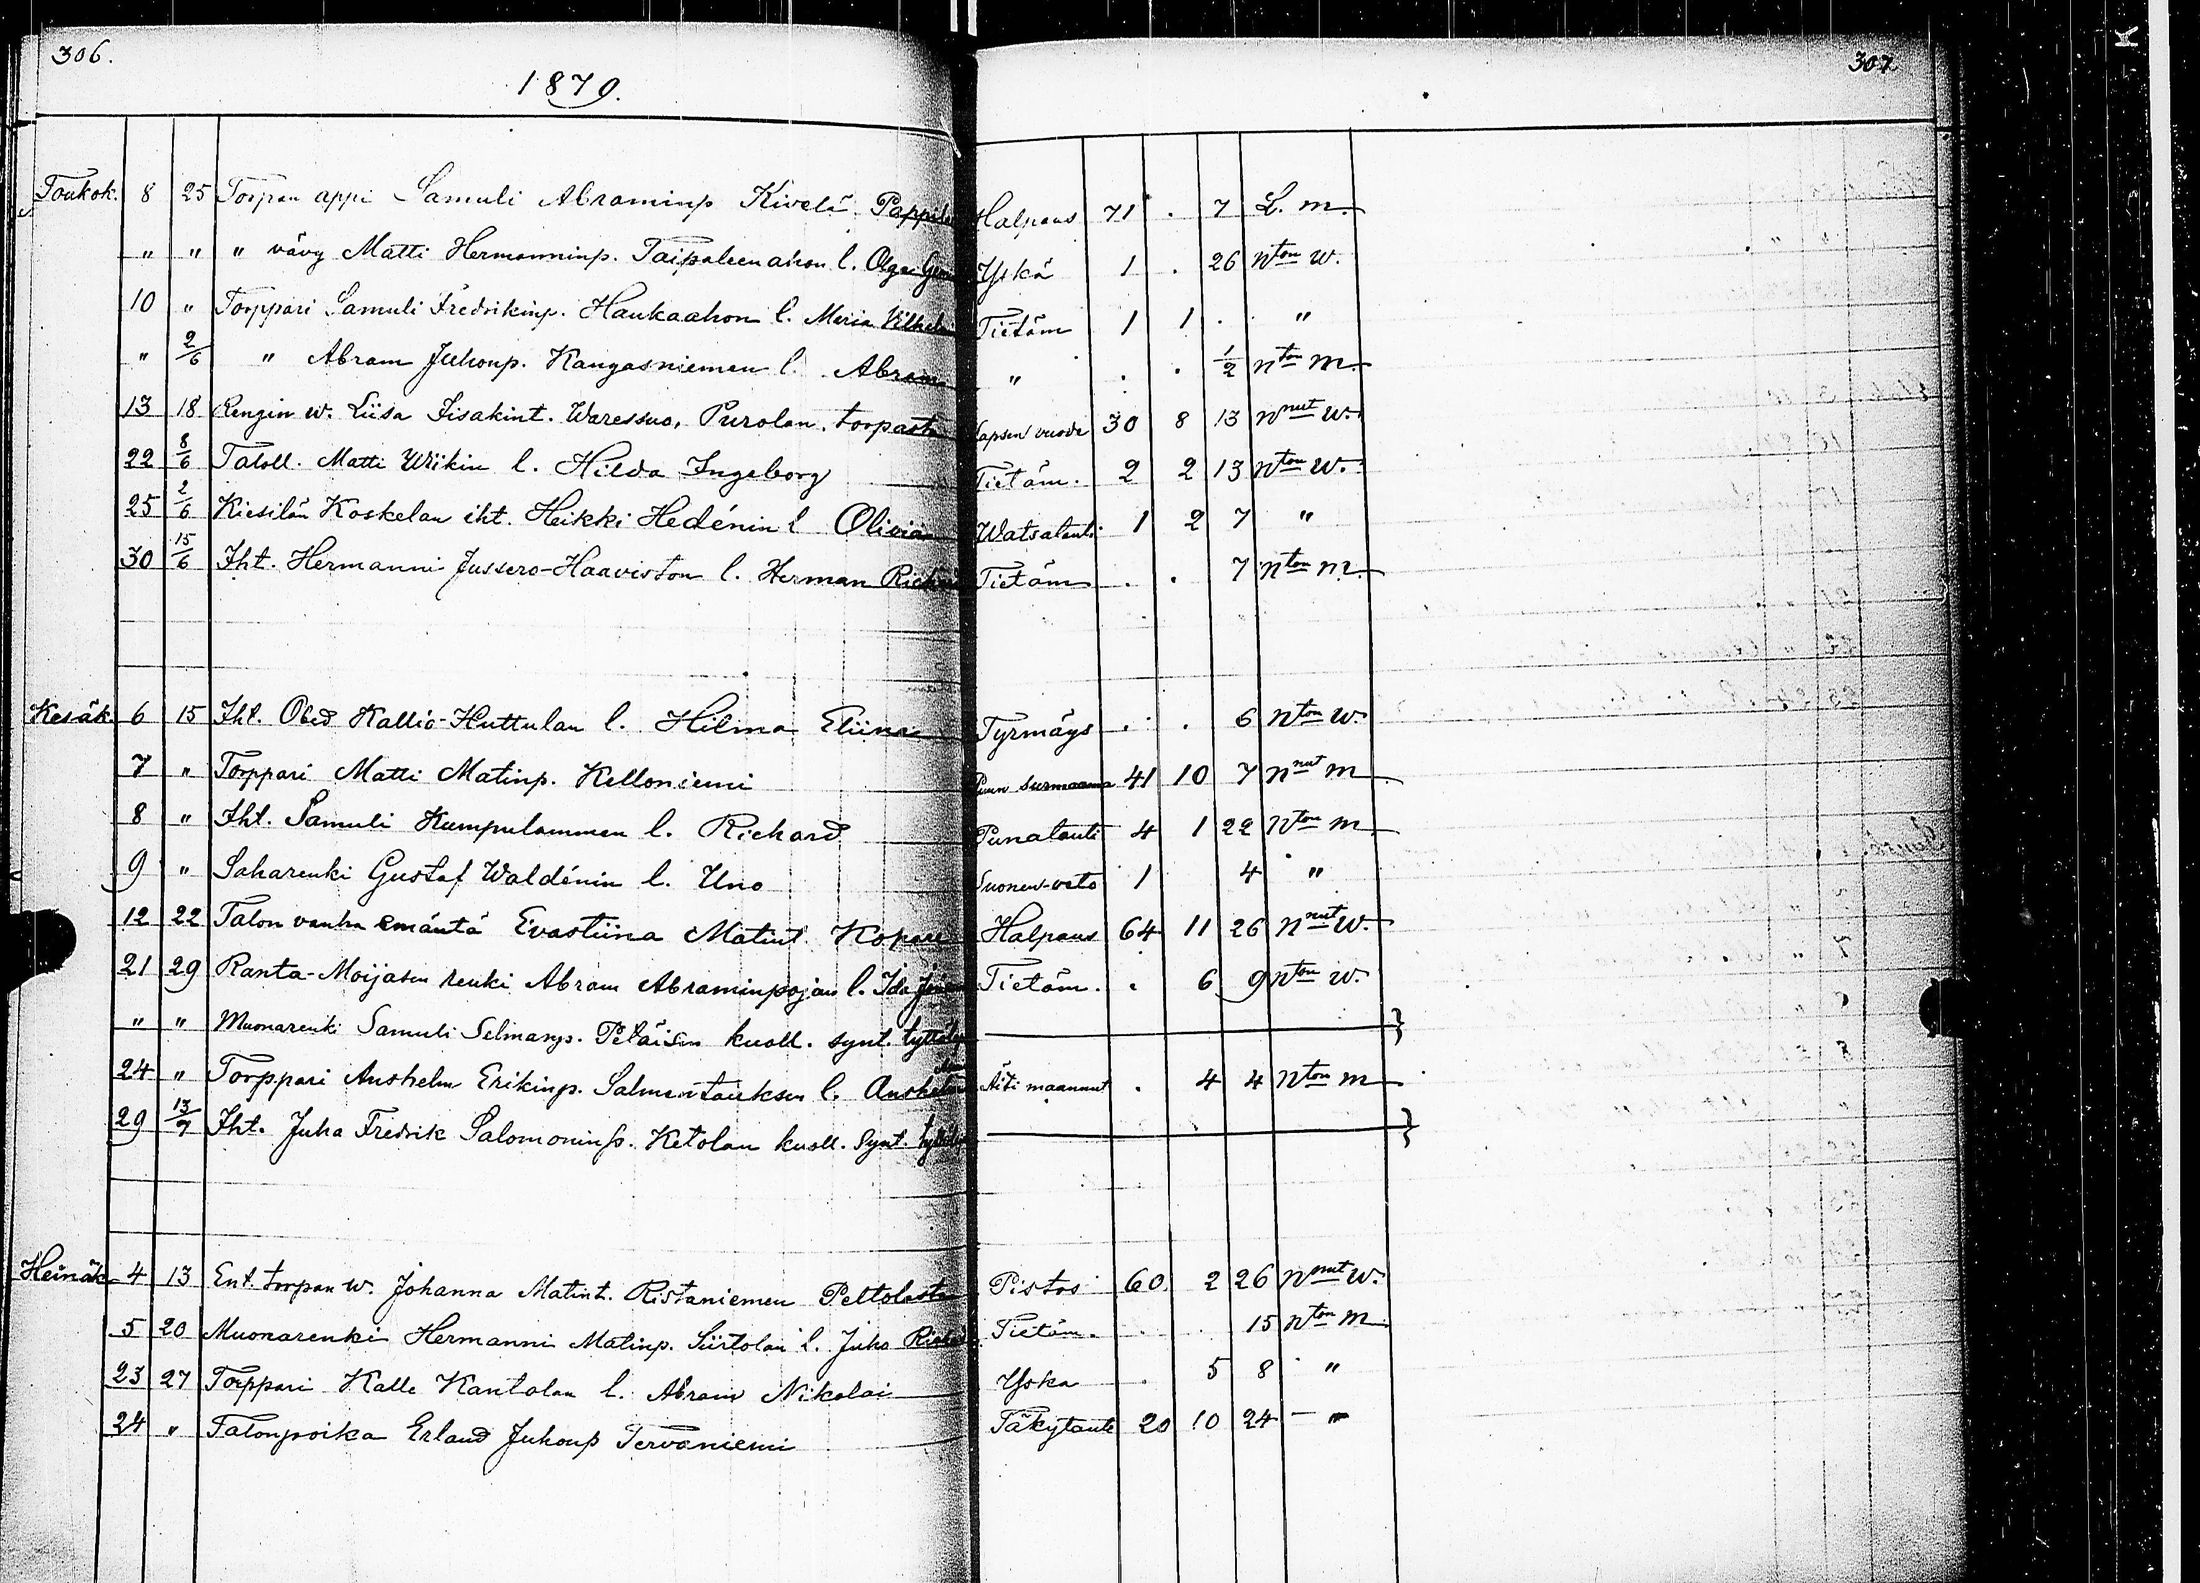 306.
307
1879.
Toukok. 8 25 Torpan appi Samuli Abraminp Kivelä Halpaus 71 . 7 L. m.
" " " vävy Matti Hermanninp. Taipaleenahon l. Olga Yskä 1 . 26 Nton w.
10 " Torppari Samuli Fredrikinp. Haukaahon l. Maria Tietäm 1 1 . "
" 2/6 " Abram Juhonp. Kangasniemen l. Abram " . . 1/2 nton m.
13 18 Rengin w. Liisa Iisakint. Waressuo, Purolan torpasta Lapsen vuode 30 8 13 nnut w.
22 8/6 Taloll. Matti Wiikin l. Hilda Ingeborg Tietäm. 2 2 13 nton w.
25 2/6 Kiesilän Koskelan iht. Heikki Hedénin l Olivia Watsatauti 1 2 7 "
30 15/6 Iht. Hermanni Jussero-Haaviston l. Herman Tietäm . . 7 nton m.
Kesäk. 6 15 Iht. Obed Kallio-Huttulan l. Hilma Eliina Tyrmäys . . 6 nton w.
7 " Torppari Matti Matinp. Kelloniemi Puun surmaama 41 10 7 nnut m
8 " Iht. Samuli Kumpulammen l. Richard Punatauti 4 1 22 Nton m
9 " Saharenki Gustaf Waldénin l. Uno Suonen-veto 1 4 "
12 22 Talon vanha emäntä Evastiina Matint. Halpaus 64 11 26 Nnut W.
21 29 Ranta-Moijasen renki Abram Abraminpojan l. Ida Tietäm. . 6 9 nton w.
" " Muonarenki Samuli Selmanp. Petäisen kuoll. synt.
24 " Torppari Anshelm Erikinp. l. Äiti maannut . 4 4 Nton m
29 13/7 Iht. Juha Fredrik Salomoninp. Ketolan kuoll. synt.
Heinäk 4 13 Ent. torpan w. Johanna Matint. Ristaniemen Peltolasta Pistos 60. 2 26 Nnut w.
5 20 Muonarenki Hermanni Matinp. Siirtolan l. Juho Tietäm. . . 15 nton m
23 27 Torppari Kalle Kantolan l. Abram Nikolai Yska . 5 8 "
24 " Talonpoika Erland Juhonp Tervaniemi Täkytauti 20 10 24 — "
K